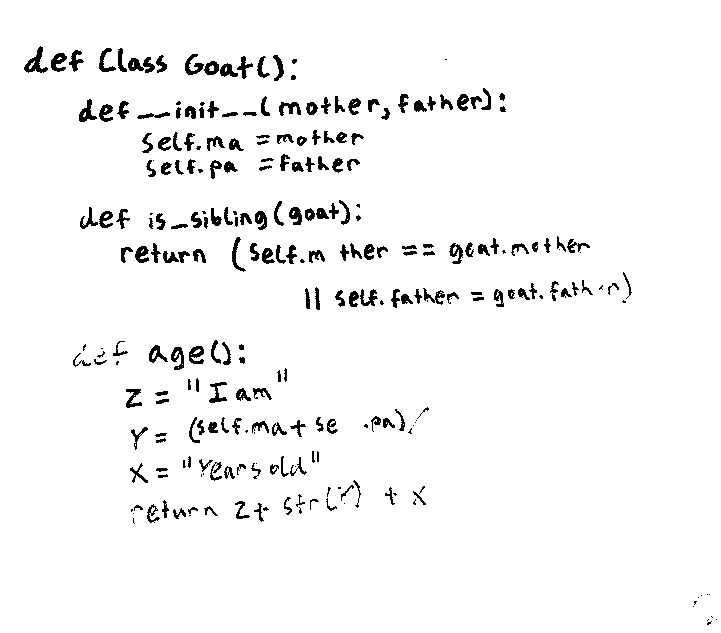 def Class Goat():
def __init__(mother, father):
self.ma = mother
self.pa = father
def is_sibling(goat):
return (self.m ther == goat.mother
|| self.father = goat.father)
def age():
Z = "I am"
Y = (self.ma + se .pa)/
X = "Years old"
return Z + str(Y) + X